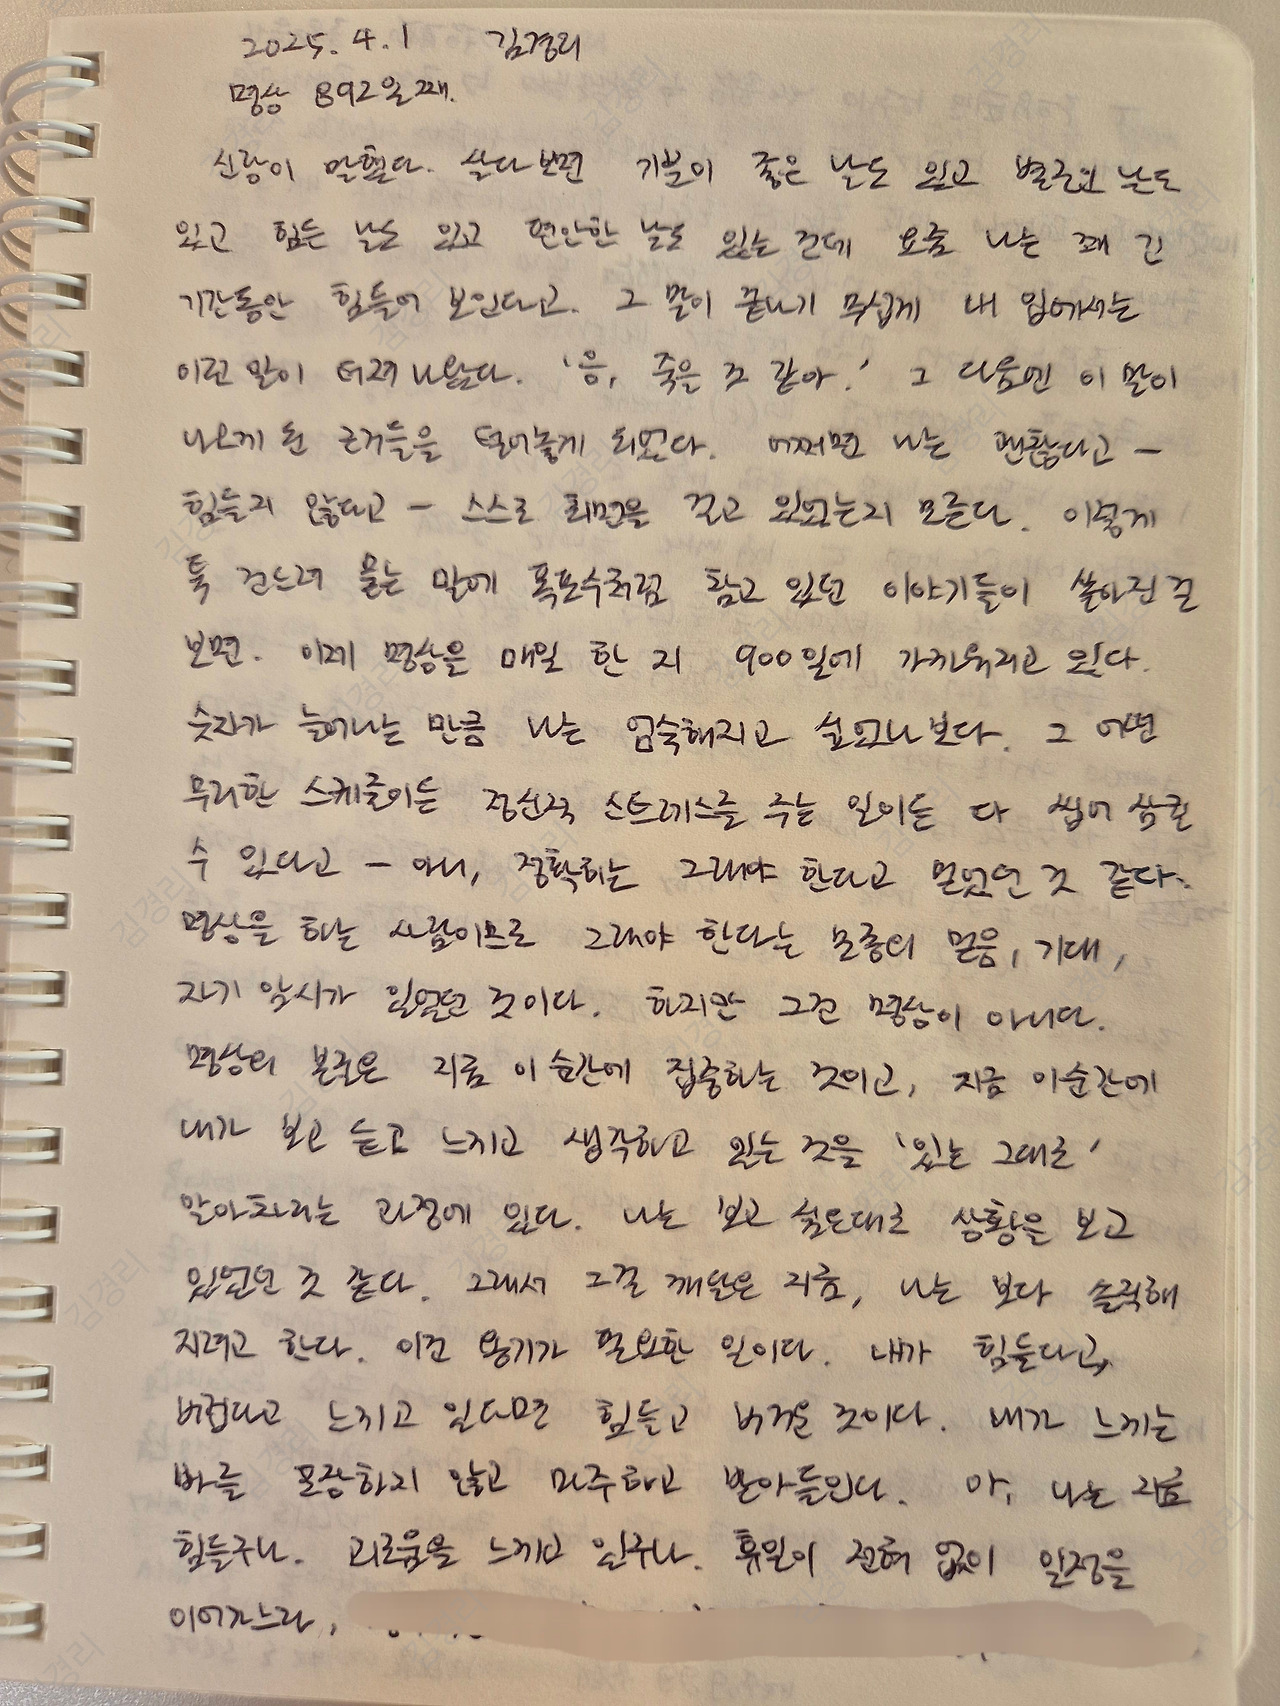 2025. 4. 1 김경리
명상 892일째.
신랑이 말했다. 살다보면 기분이 좋은 날도 있고 별로인 날도
있고 힘든 날도 있고 편안한 날도 있는 건데 요즘 나는 꽤 긴
기간동안 힘들어 보인다고. 그 말이 끝나기 무섭게 내 입에서는
이런 말이 터져 나왔다. '응, 죽을 것 같아.' 그 다음엔 이 말이
나오게 된 근거들을 털어놓게 되었다. 어쩌면 나는 괜찮다고 -
힘들지 않다고 - 스스로 최면을 걸고 있었는지 모른다. 이렇게
툭 건드려 묻는 말에 폭포수처럼 참고 있던 이야기들이 쏟아진 걸
보면. 이제 명상을 매일 한 지 900일에 가까워지고 있다.
숫자가 늘어나는 만큼 나는 엄숙해지고 싶었나보다. 그 어떤
무리한 스케줄이든 정신적 스트레스를 주는 일이든 다 씹어 삼킬
수 있다고 - 아니, 정확히는 그래야 한다고 믿었던 것 같다.
명상을 하는 사람이므로 그래야 한다는 모종의 믿음, 기대,
자기 암시가 있었던 것이다. 하지만 그건 명상이 아니다.
명상의 본질은 지금 이 순간에 집중하는 것이고, 지금 이 순간에
내가 보고 듣고 느끼고 생각하고 있는 것을 '있는 그대로'
알아차리는 과정에 있다. 나는 보고 싶은대로 상황을 보고
있었던 것 같다. 그래서 그걸 깨달은 지금, 나는 보다 솔직해
지려고 한다. 이건 용기가 필요한 일이다. 내가 힘들다고,
버겁다고 느끼고 있다면 힘들고 버거운 것이다. 내가 느끼는
바를 포장하지 않고 마주하고 받아들인다. 아, 나는 지금
힘들구나. 괴로움을 느끼고 있구나. 휴일이 전혀 없이 일정을
이어가느라,